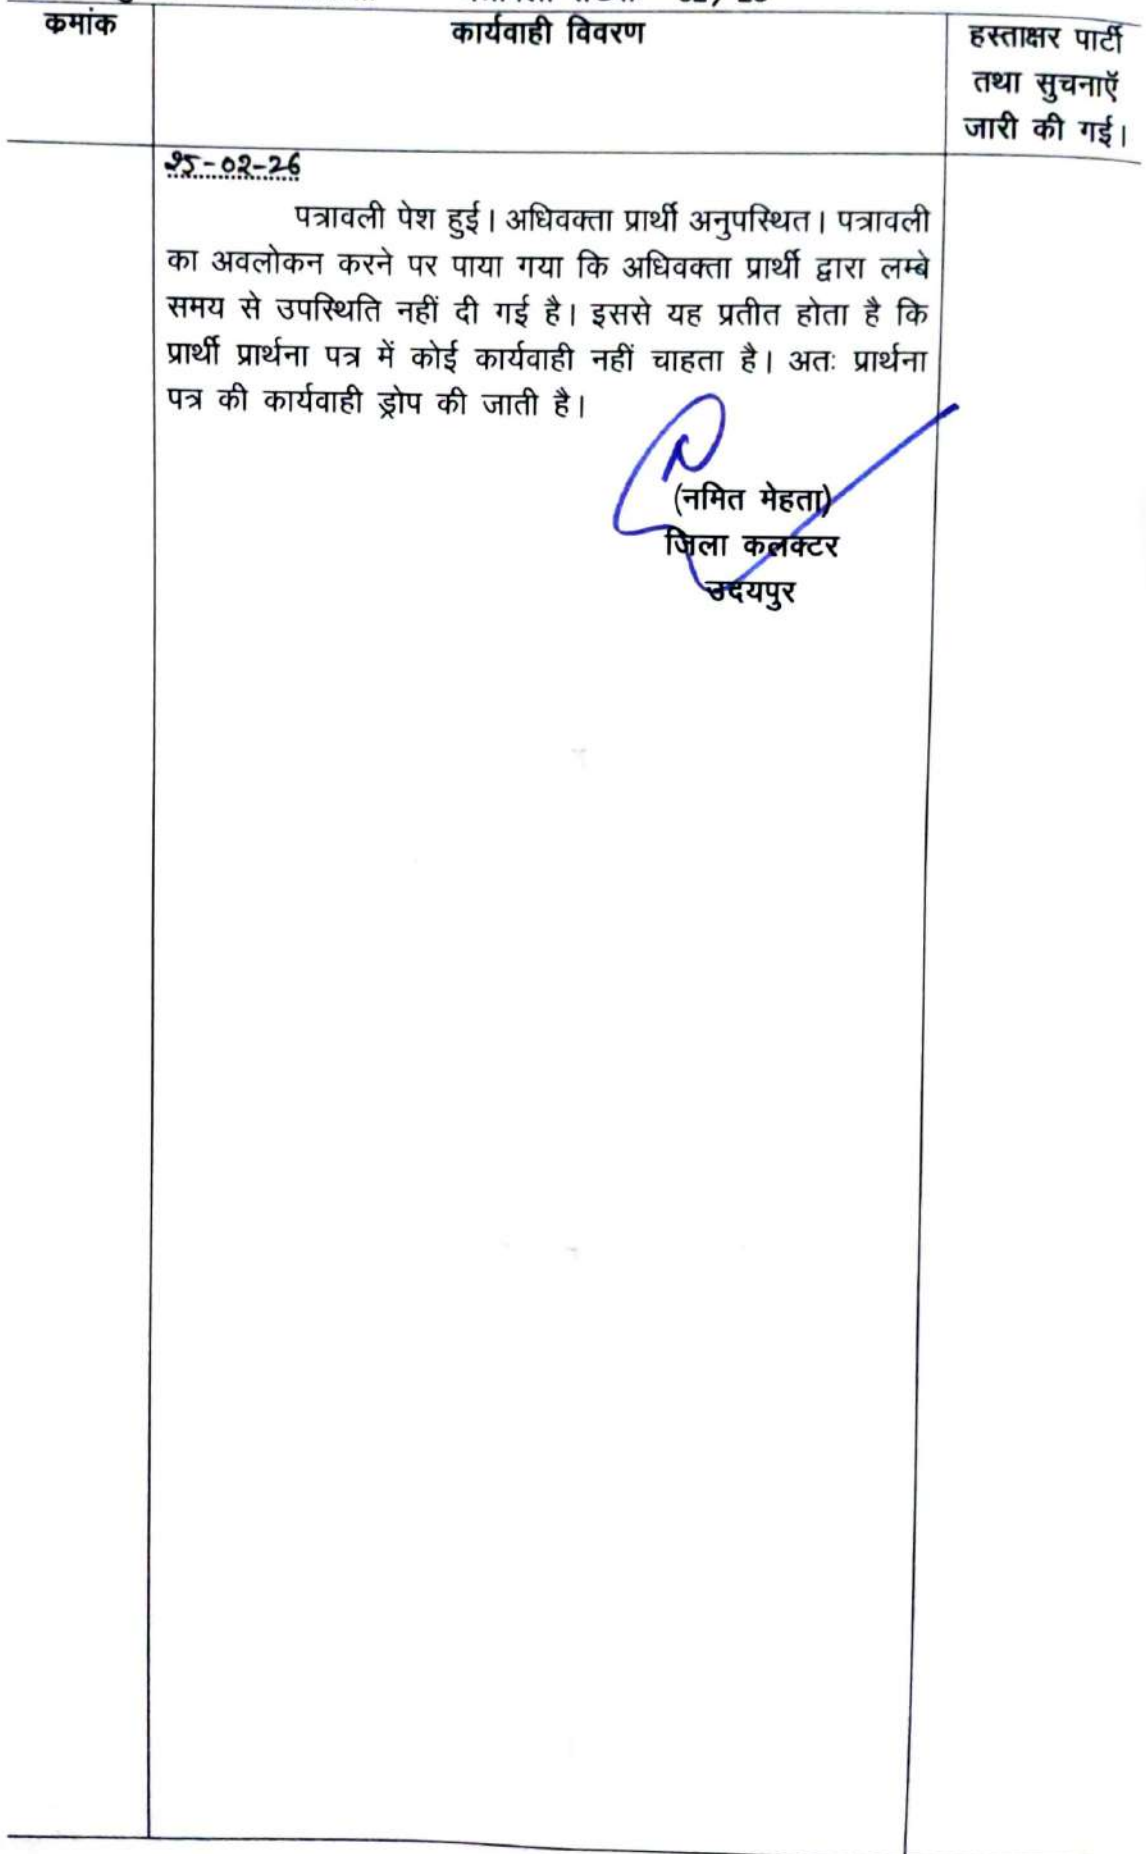 क्रमांक
कार्यवाही विवरण
हस्ताक्षर पार्टी
तथा सुचनाएँ
जारी की गई।
25-02-26
पत्रावली पेश हुई। अधिवक्ता प्रार्थी अनुपस्थित। पत्रावली
का अवलोकन करने पर पाया गया कि अधिवक्ता प्रार्थी द्वारा लम्बे
समय से उपस्थिति नहीं दी गई है। इससे यह प्रतीत होता है कि
प्रार्थी प्रार्थना पत्र में कोई कार्यवाही नहीं चाहता है। अतः प्रार्थना
पत्र की कार्यवाही ड्रोप की जाती है।
(नमित मेहता)
जिला कलक्टर
उदयपुर